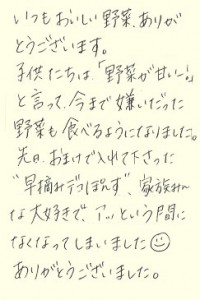 いつもおいしい野菜、ありが
とうございます。
子供たちは、「野菜が甘いー。」
と言って、今まで嫌いだった
野菜も食べるようになりました。
先日、おまけで入れて下さった
"早摘みデコぽんず"、家族みん
な大好きで、アッという間に
なくなってしまいました☺
ありがとうございました。